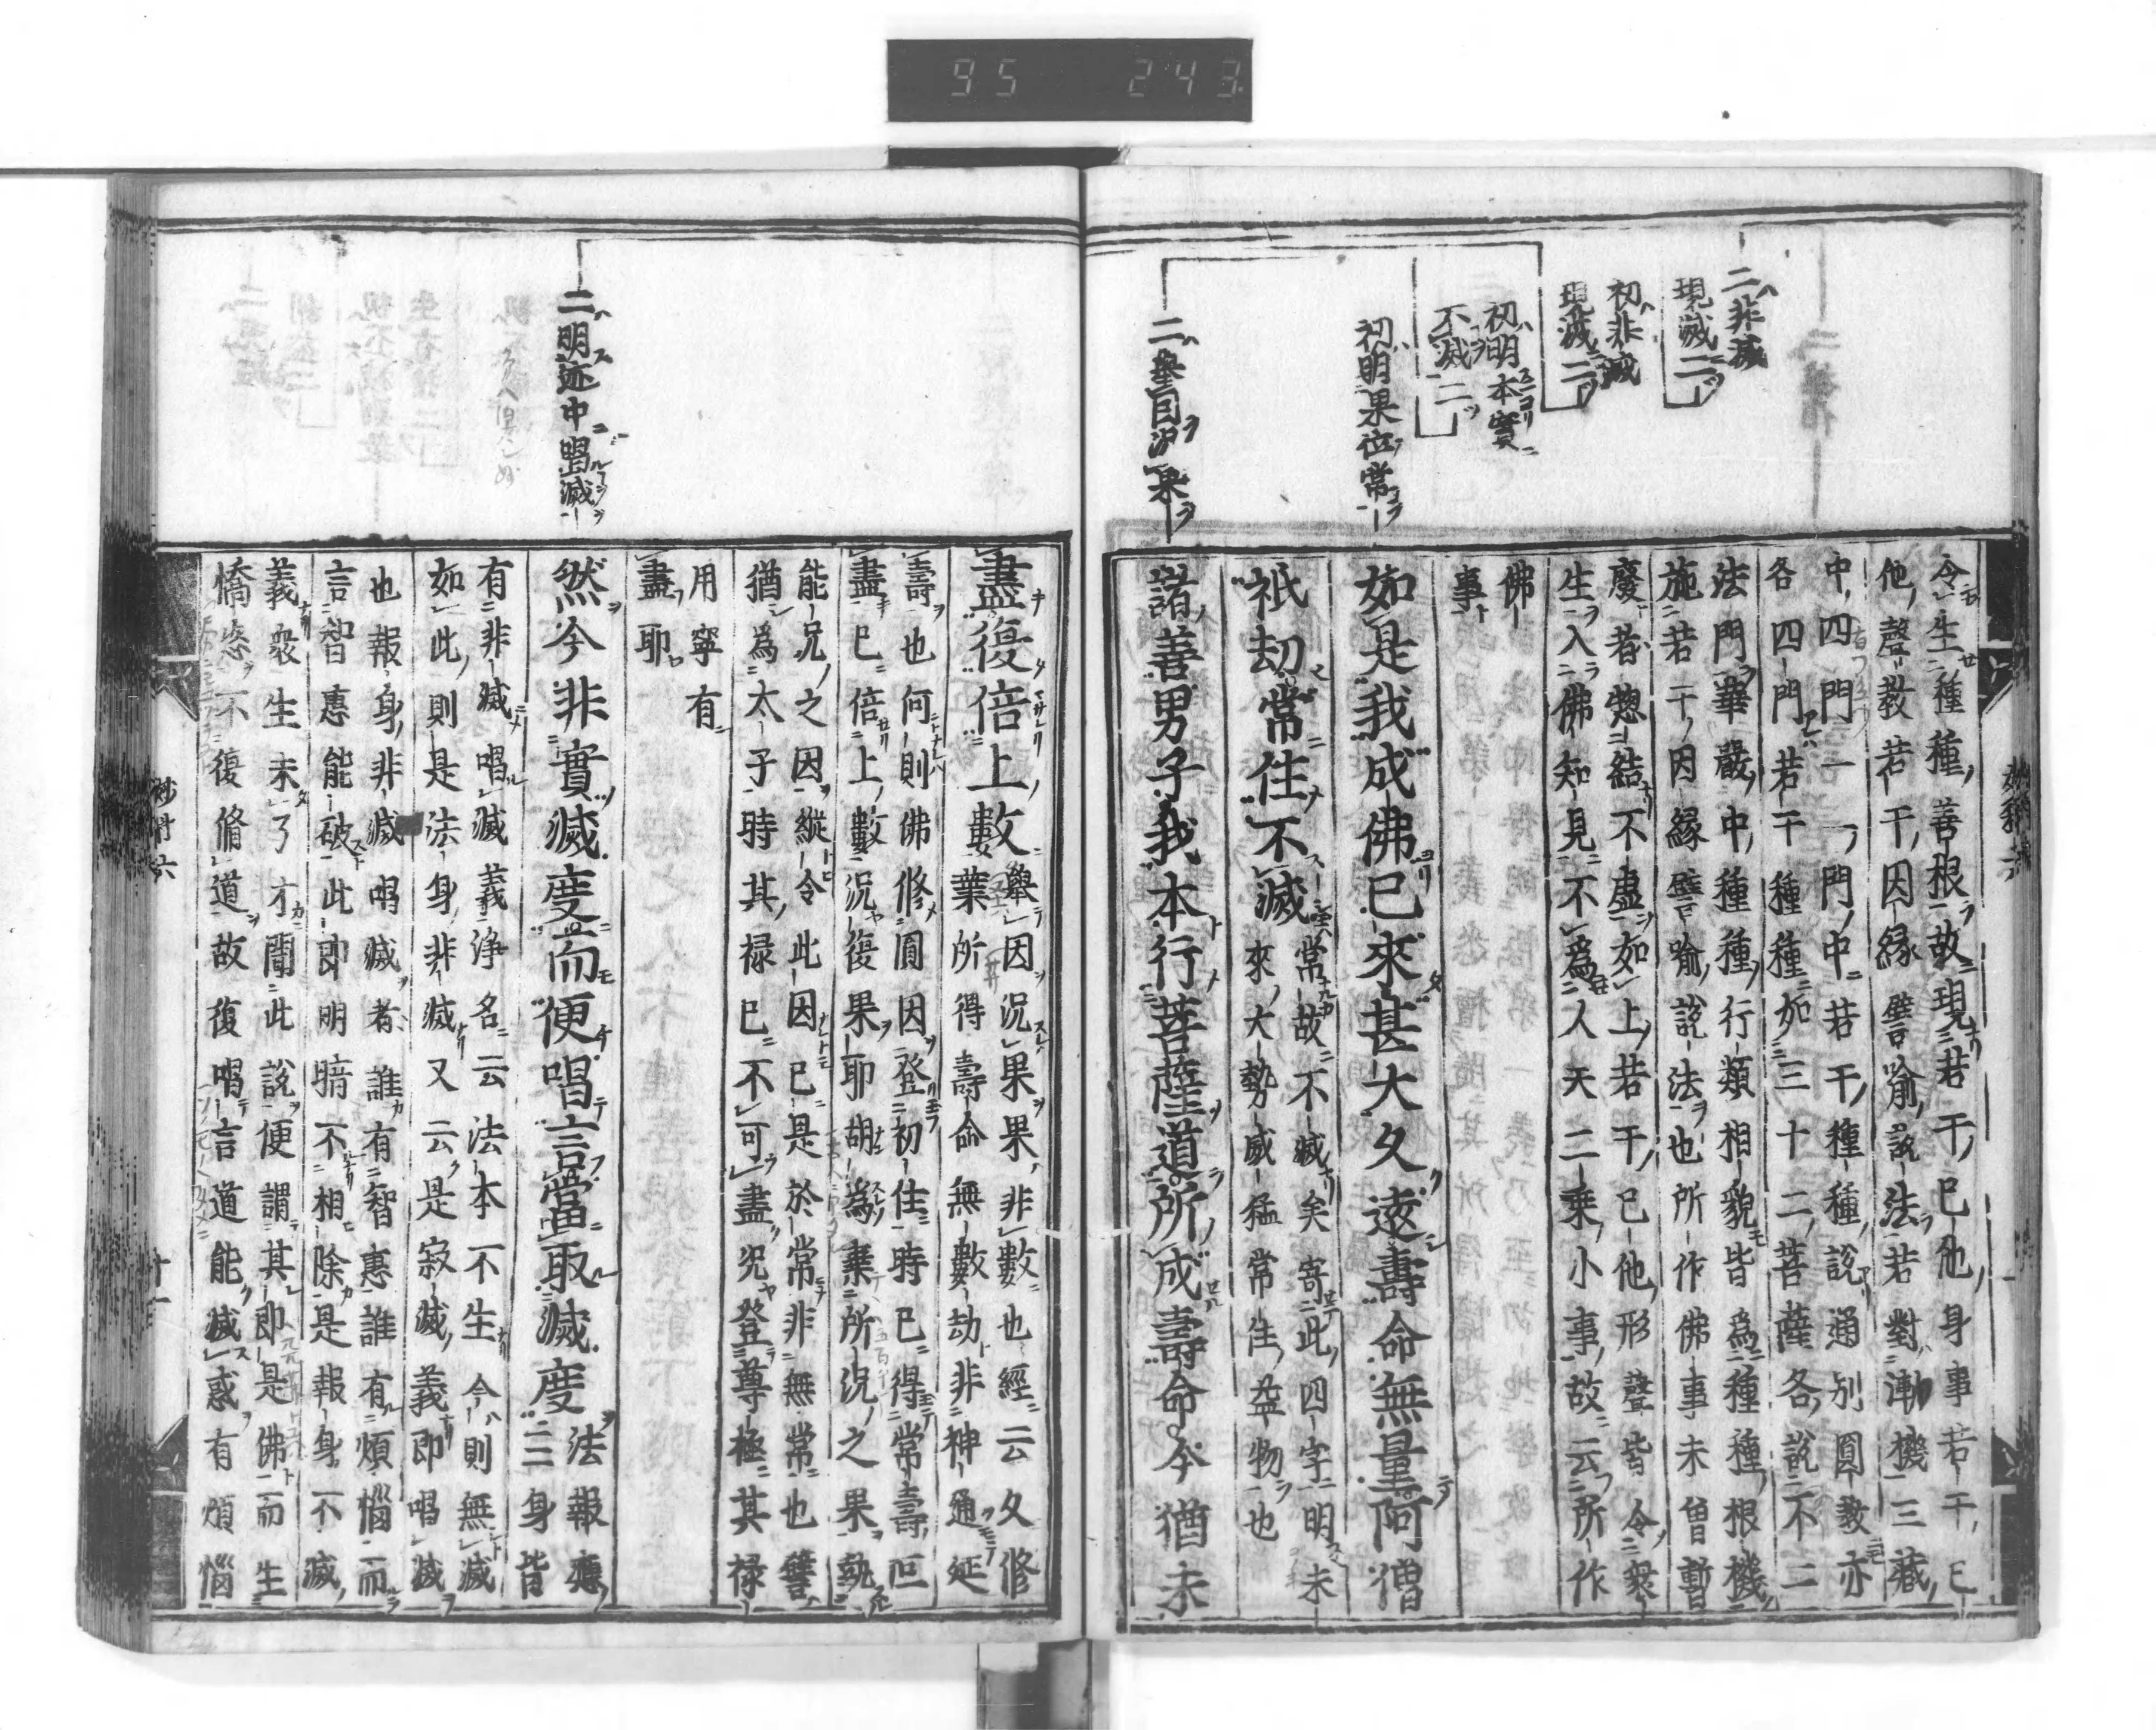 95 243
二非滅
現滅二
初非滅
現滅二
初明本實
不滅二
初明果位常
二擧因況果
令生種種善根故現若干已他身事若干已
他聲教若干因緣譬喻說法若對漸機三藏
中四門一一門中若干種種說通別圓教亦
各四門若干種種如三十二菩薩各說不二
法門華嚴中種種行類相貌皆爲種種根機
施若干因緣譬喻說法也所作佛事未曾暫
廢者惣結不盡如上若干已他形聲皆令衆
生入佛知見不爲人天二乘小事故云所作
佛
事
如是我成佛已來甚大久遠壽命無量阿僧
祇劫常住不滅
常故不滅矣寄此四字明未
來大勢威猛常住益物也
諸善男子我本行菩薩道所成壽命今猶未
妙科六
二明迹中唱滅
盡復倍上數
擧因況果果非數也經云久修
業所得壽命無數劫非神通延
壽也何則佛修圓因登初住時已得常壽叵
盡已倍上數況復果耶胡爲棄所況之果執
能況之因縱令此因已是於常非無常也譬
猶爲太子時其祿已不可盡況登尊極其祿
用寧有
盡耶
然今非實滅度而便唱言當取滅度
法報應
三身皆
有非滅唱滅義淨名云法本不生今則無滅
如此則是法身非滅又云是寂滅義即唱滅
也報身非滅唱滅者誰有智惠誰有煩惱而
言智惠能破此即明暗不相除是報身不滅
義衆生未了才聞此說便謂其即是佛而生
憍恣不復脩道故復唱言道能滅惑有煩惱
妙科六
十一